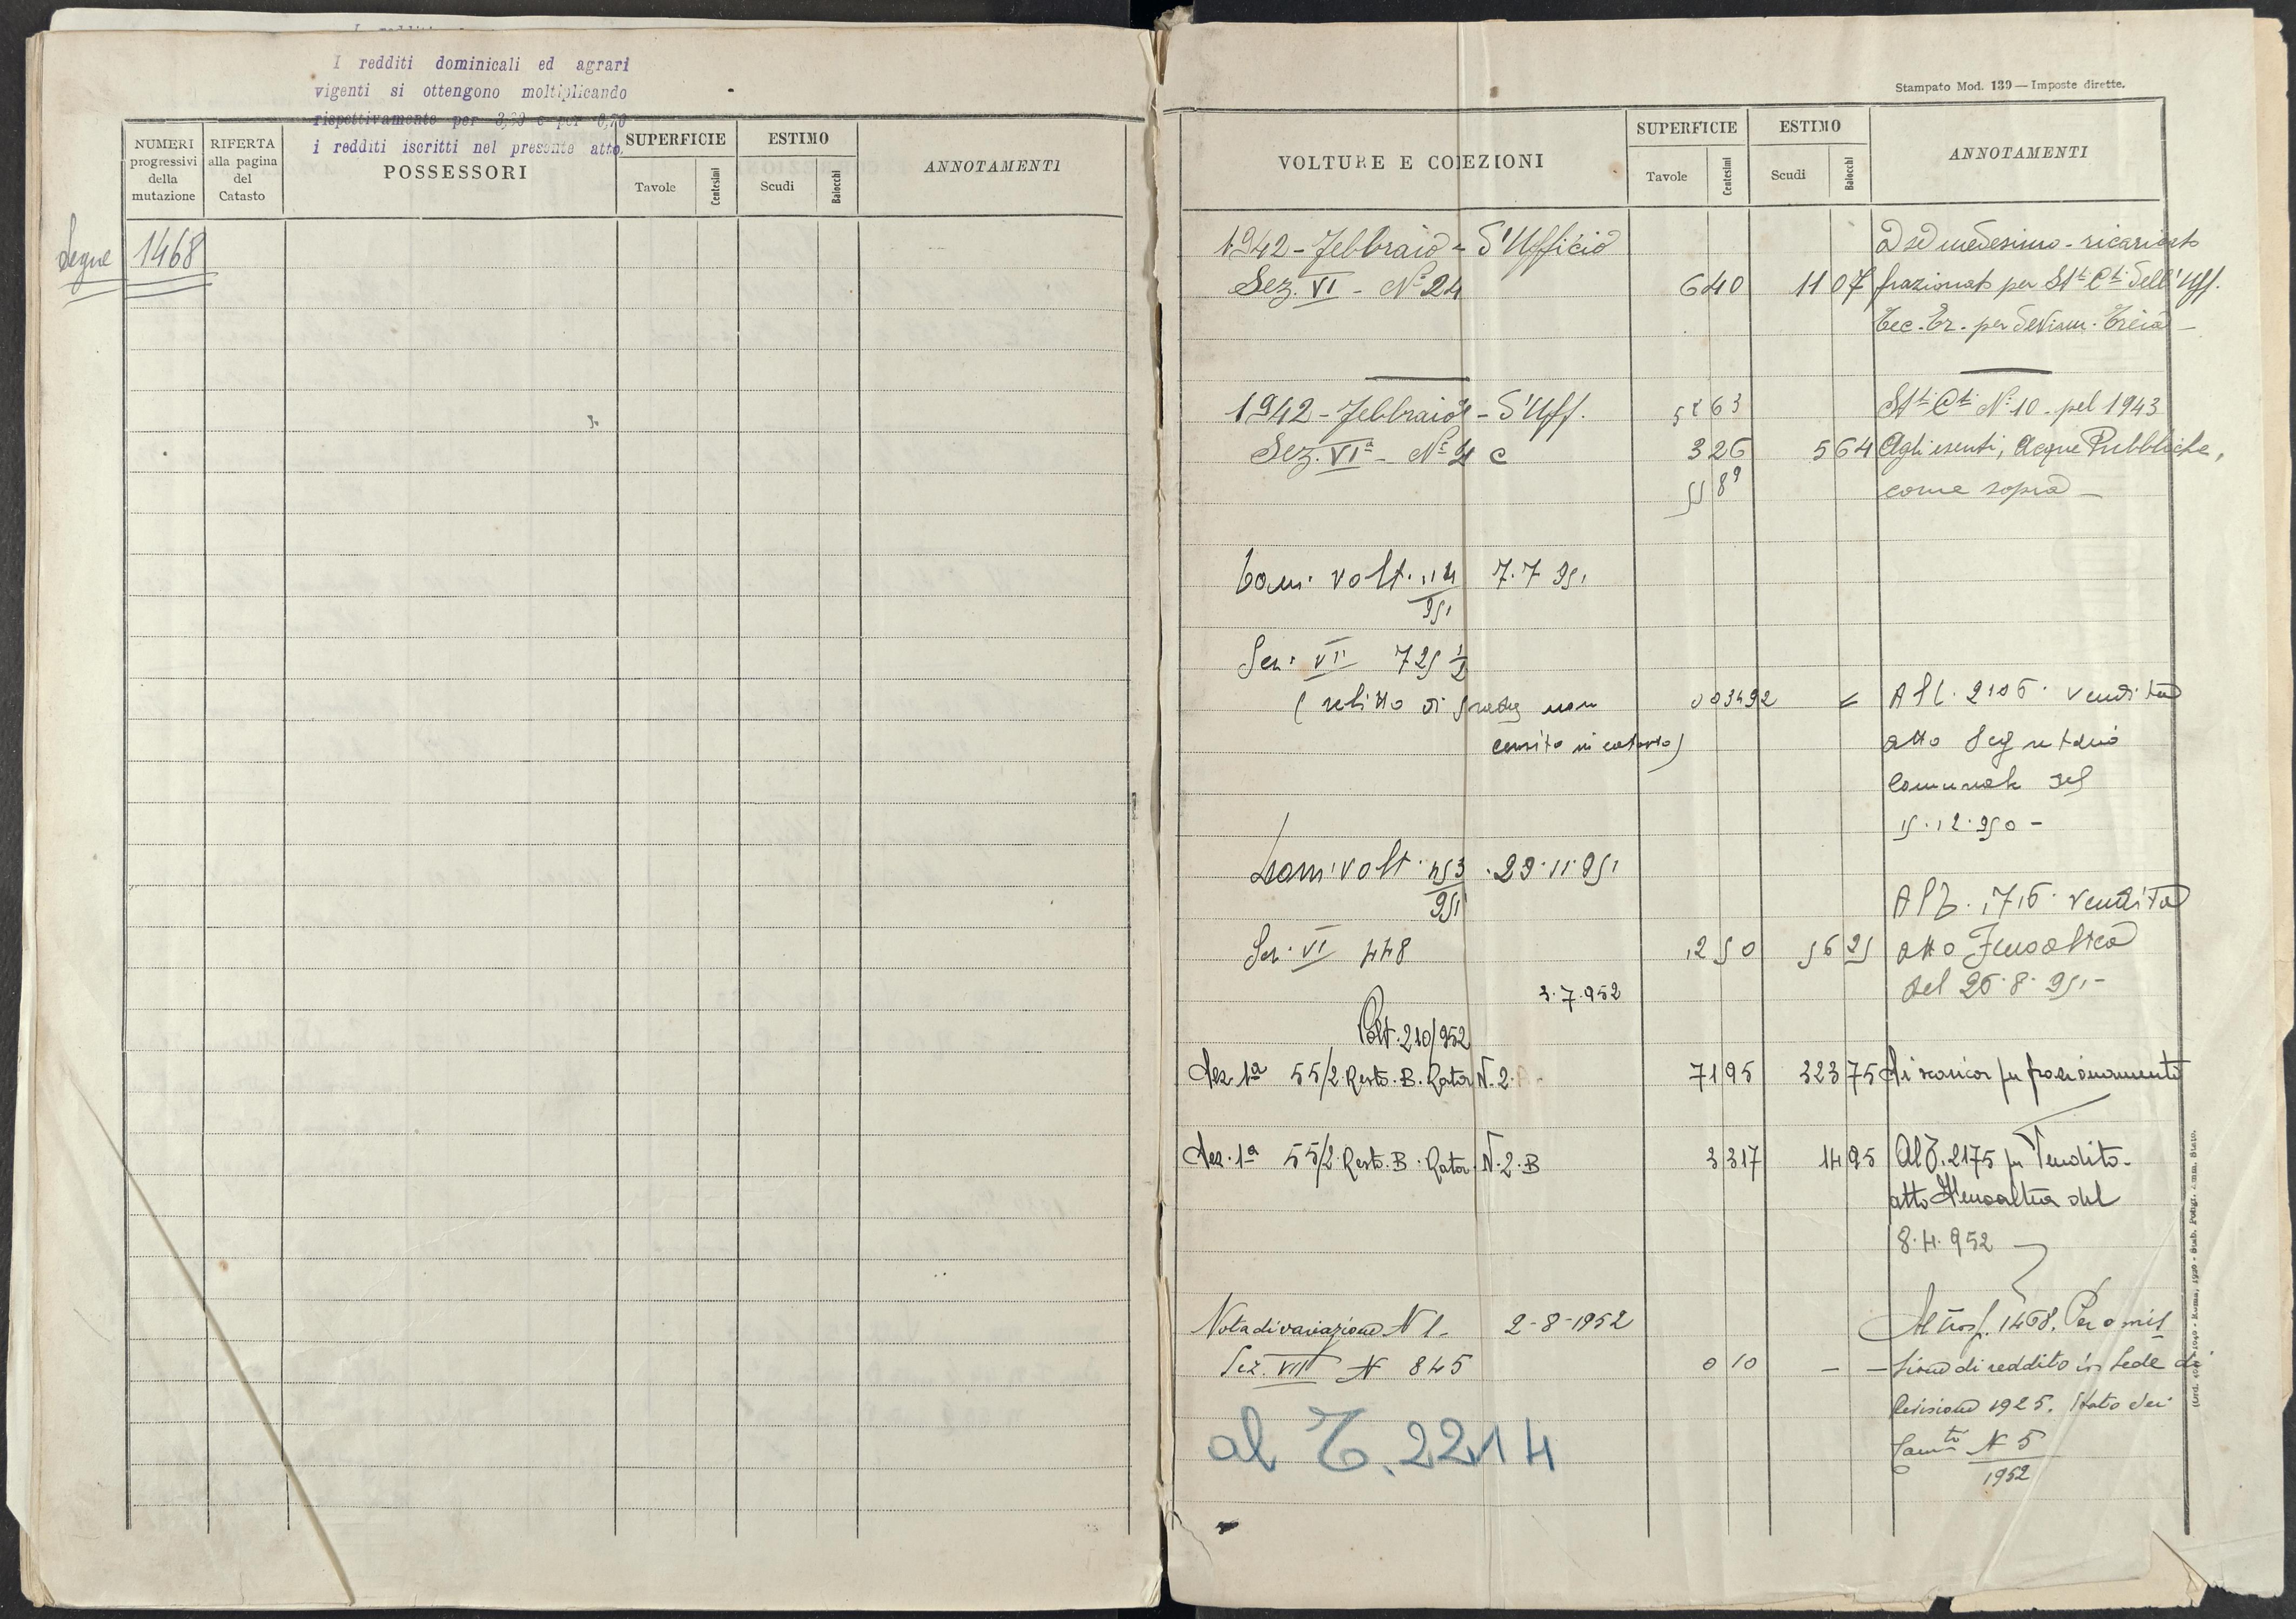 I redditi dominicali ed agrari
vigenti si ottengono moltiplicando
rispettivamente per 3,33 e per 6,70
i redditi iscritti nel presente atto.
NUMERI progressivi della mutazione
RIFERTA alla pagina del Catasto
POSSESSORI
SUPERFICIE
Tavole Centesimi
ESTIMO
Scudi Baiocchi
ANNOTAMENTI
Segue 1468
Stampato Mod. 139 — Imposte dirette.
VOLTURE E CORREZIONI
SUPERFICIE
Tavole Centesimi
ESTIMO
Scudi Baiocchi
ANNOTAMENTI
1942 - Febbraio - D'Ufficio a se medesimo - ricaricato
Sez. VI - N° 24 6 40 11 07 frazionato per St.ti C.ti dell'Uff.
Tec. Er. per Treia -
1942 - Febbraio - D'Uff. 63 St.ti C.ti N° 10 - pel 1943
Sez. VIa - N° 4 c 3 26 5 64 Agli esenti, Acque Pubbliche,
come sopra -
volt. 114/951 7.7 951
Sez. VII 725 1/2
(relitto di strada non 003492 = Al T. 2106 vendita
censito in catasto) atto Segretario
Comunale del
15.12.950 -
Dom. volt. 453/951 . 29.11.951
Al T. 1716 vendita
Sez. VI 448 1250 56 25 atto Fenoaltea
del 26.8.951 -
3.7.952
Volt. 210/952
Sez. 1a 55/2. Resto. B. Rata N. 2. 71 95 323 75 Si scarica per frazionamento
Sez. 1a 55/2 Resto. B. Rata N. 2. B 33 17 14 95 Al T. 2175 per Vendita.
atto Fenoaltea del
8.4.952
Nota di variazione N 1. 2-8-1952 Al 1468. Per omis
Sez. VII N 845 0 10 - - sione di reddito in sede di
Revisione 1925. Stato dei
N 5/1952
al T. 2214